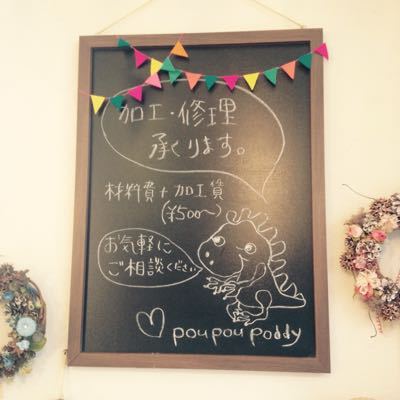 加工・修理
承ります。
材料費+加工賃
(¥500〜)
お気軽に
ご相談ください
♡ poupou poddy